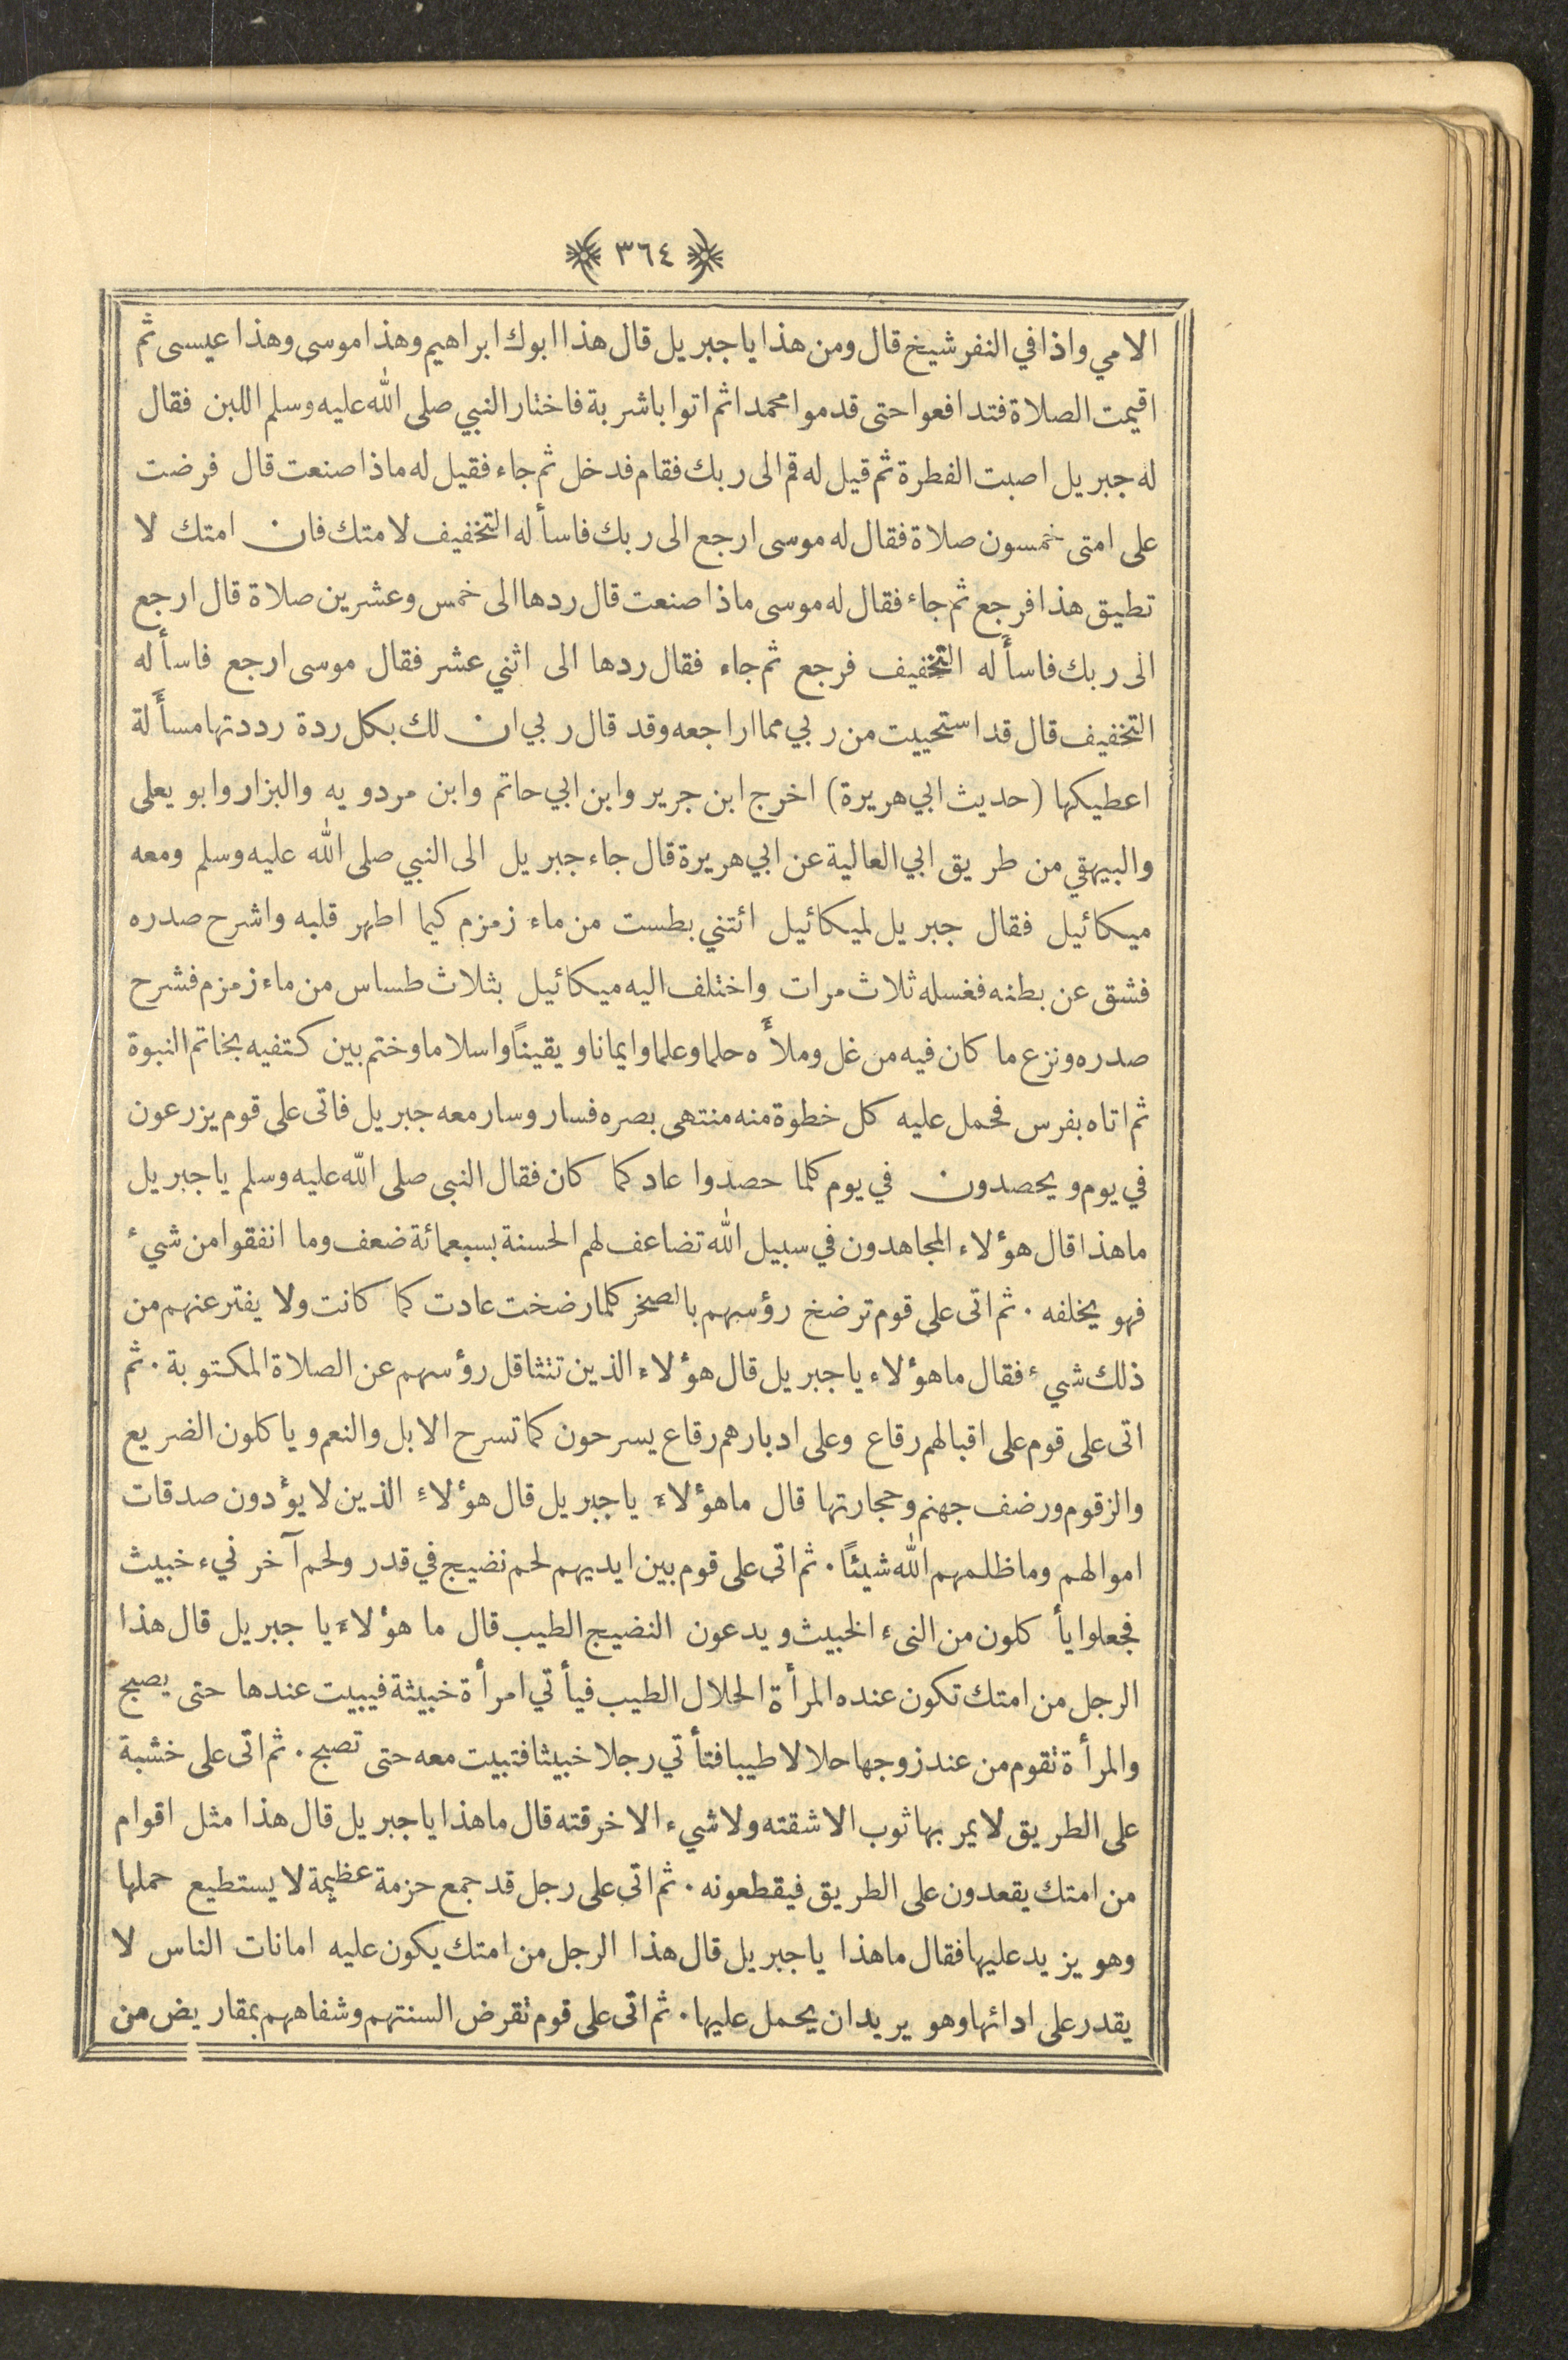 ﴿ ٣٦٤ ﴾
الامي واذا في النفر شيخ قال ومن هذا يا جبريل قال هذا ابوك ابراهيم وهذا موسى وهذا عيسى ثم
اقيمت الصلاة فتدافعوا حتى قدموا محمدا ثم اتوا باشربة فاختار النبي صلى الله عليه وسلم اللبن فقال
له جبريل اصبت الفطرة ثم قيل له قم الى ربك فقام فدخل ثم جاء فقيل له ماذا صنعت قال فرضت
على امتى خمسون صلاة فقال له موسى ارجع الى ربك فاسأله التخفيف لامتك فان امتك لا
تطيق هذا فرجع ثم جاء فقال له موسى ماذا صنعت قال ردها الى خمس وعشرين صلاة قال ارجع
الى ربك فاسأله التخفيف فرجع ثم جاء فقال ردها الى اثني عشر فقال موسى ارجع فاسأله
التخفيف قال قد استحييت من ربي مما اراجعه وقد قال ربي ان لك بكل ردة رددتها مسأَلة
اعطيكها (حديث ابي هريرة) اخرج ابن جرير وابن ابي حاتم وابن مردويه والبزار وابو يعلى
والبيهقي من طريق ابي العالية عن ابي هريرة قال جاء جبريل الى النبي صلى الله عليه وسلم ومعه
ميكائيل فقال جبريل لميكائيل ائتني بطست من ماء زمزم كيما اطهر قلبه واشرح صدره
فشق عن بطنه فغسله ثلاث مرات واختلف اليه ميكائيل بثلاث طساس من ماء زمزم فشرح
صدره ونزع ما كان فيه من غل وملأَه حلما وعلما وايمانا ويقيناً واسلاما وختم بين كتفيه بخاتم النبوة
ثم اتاه بفرس فحمل عليه كل خطوة منه منتهى بصره فسار وسار معه جبريل فاتى على قوم يزرعون
في يوم ويحصدون في يوم كلما حصدوا عاد كما كان فقال النبى صلى الله عليه وسلم يا جبريل
ما هذا قال هؤلاء المجاهدون في سبيل الله تضاعف لهم الحسنة بسبعمائة ضعف وما انفقوا من شيء
فهو يخلفه ٠ ثم اتى على قوم ترضخ رؤسهم بالصخر كلما رضخت عادت كما كانت ولا يفتر عنهم من
ذلك شيء فقال ما هؤلاء يا جبريل قال هؤلاء الذين تتثاقل رؤسهم عن الصلاة المكتوبة ٠ ثم
اتى على قوم على اقبالهم رقاع وعلى ادبارهم رقاع يسرحون كما تسرح الابل والنعم وياكلون الضريع
والزقوم ورضف جهنم وحجارتها قال ما هؤلاءَ يا جبريل قال هؤلاءِ الذين لا يؤدون صدقات
اموالهم وما ظلمهم الله شيئاً ٠ ثم اتى على قوم بين ايديهم لحم نضيج في قدر ولحم آخر نيء خبيث
فجعلوا يأكلون من النىء الخبيث ويدعون النضيج الطيب قال ما هؤلاءَ يا جبريل قال هذا
الرجل من امتك تكون عنده المرأة الحلال الطيب فيأتي امرأة خبيثة فيبيت عندها حتى يصبح
والمرأة تقوم من عند زوجها حلالا طيبا فتأتي رجلا خبيثا فتبيت معه حتى تصبح ٠ ثم اتى على خشبة
على الطريق لا يمر بها ثوب الا شقته ولا شيء الا خرقته قال ما هذا يا جبريل قال هذا مثل اقوام
من امتك يقعدون على الطريق فيقطعونه ٠ ثم اتى على رجل قد جمع حزمة عظيمة لا يستطيع حملها
وهو يزيد عليها فقال ما هذا يا جبريل قال هذا الرجل من امتك يكون عليه امانات الناس لا
يقدر على ادائها وهو يريد ان يحمل عليها ٠ ثم اتى على قوم تقرض السنتهم وشفاههم بمقاريض من